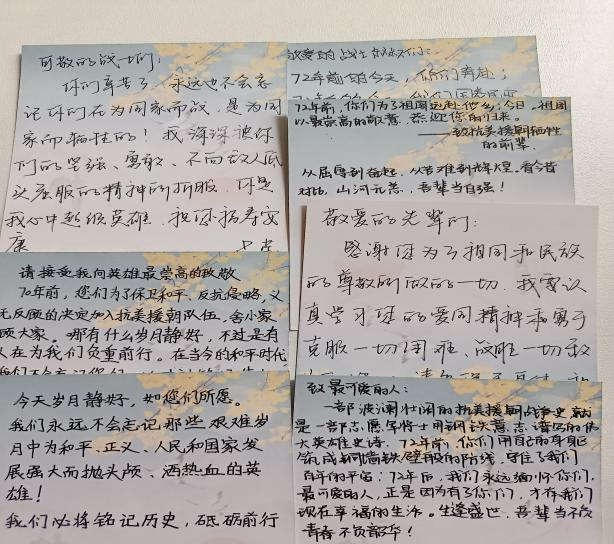 可敬的战士们:
你们辛苦了,永远也不会忘
记你们在为国家而战,是为国
家而牺牲的!我深深被你
们的坚强、勇敢、不向敌人低
头屈服的精神所折服,你是
我心中超级英雄,祝您福寿安
康
敬爱的战士叔叔们:
72年前的今天,你们奔赴
72年前,你们为了祖国远赴他乡;今日,祖国
以最崇高的敬意,恭迎您的归来。
——致抗美援朝牺牲
的前辈
从屈辱到奋起,从苦难到辉煌。看今昔
对比,山河无恙,吾辈当自强!
敬爱的先辈们:
感谢您为了祖国和民族
的尊敬所做的一切,我要认
真学习您的爱国精神和勇于
克服一切困难、战胜一切敌
请接受我向英雄最崇高的致敬
70年前,您们为了保卫和平、反抗侵略,义
无反顾的决定加入抗美援朝队伍,舍小家
顾大家。哪有什么岁月静好,不过是有
人在为我们负重前行。在当今的和平时代
今天岁月静好,如您们所愿。
我们永远不会忘记那些艰难岁
月中为和平、正义、人民和国家发
展强大而抛头颅、洒热血的英
雄!
我们必将铭记历史,砥砺前行
致最可爱的人:
一部波澜壮阔的抗美援朝战争史就
是一部志愿军将士用钢铁意志谱写的伟
大英雄史诗。72年前,你们用自己的身躯
筑成铜墙铁壁般的防线,守住了我们
百年的平宙;72年后,我们永远缅怀你们。
最可爱的人,正是因为有了你们,才有我们
现在幸福的生活。生逢盛世,吾辈当不负
青春不负韶华!